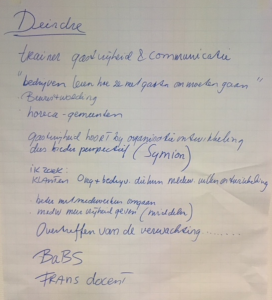 Deirdre
trainer gastvrijheid & communicatie
"bedrijven leren hoe ze met gasten om moeten gaan"
Bewustwording
horeca - gemeenten
gastvrijheid hoort bij organisatie ontwikkeling
dus breder perspectief (Symion)
ik zoek:
KLANTEN Org + bedrijv. die hun mensen willen ontwikkeling
beter met medewerkers omgaan
meer vrijheid geven (middelen)
Overtreffen van de verwachting ........
BaBS
FRANS docent